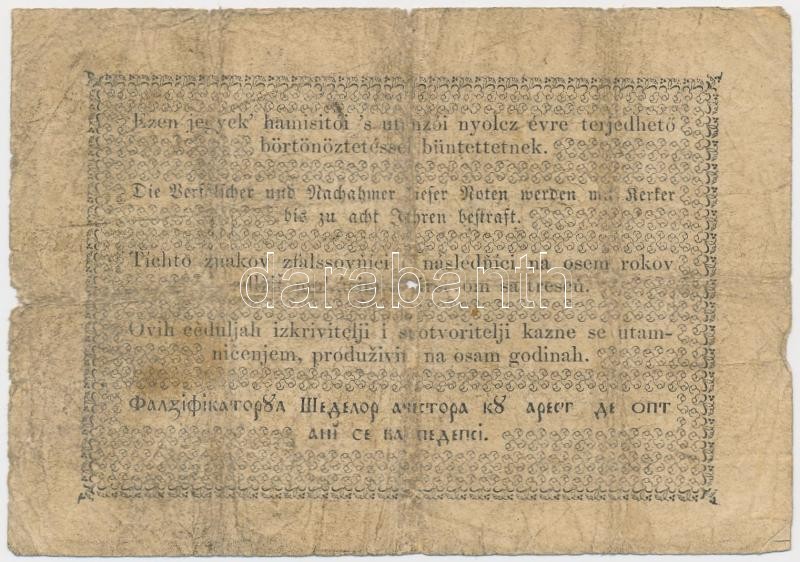 Ezen jegyek' hamisítói 's utánzói nyolcz évre terjedhető
börtönöztetéssel büntettetnek.
Die Verfälscher und Nachahmer dieser Noten werden mit Kerker
bis zu acht Jahren bestraft.
Tichto znakov zfalssovňíci a následňíci na osem rokov
sa tresců.
darabanth
Ovih ceduljah izkrivitelji i stvoritelji kazne se utam-
ničenjem, produživim na osam godinah.
Фалꙁіфікаторꙋл Шеделор ачестора кꙋ арест де опт
анĭ се ва педепсі.